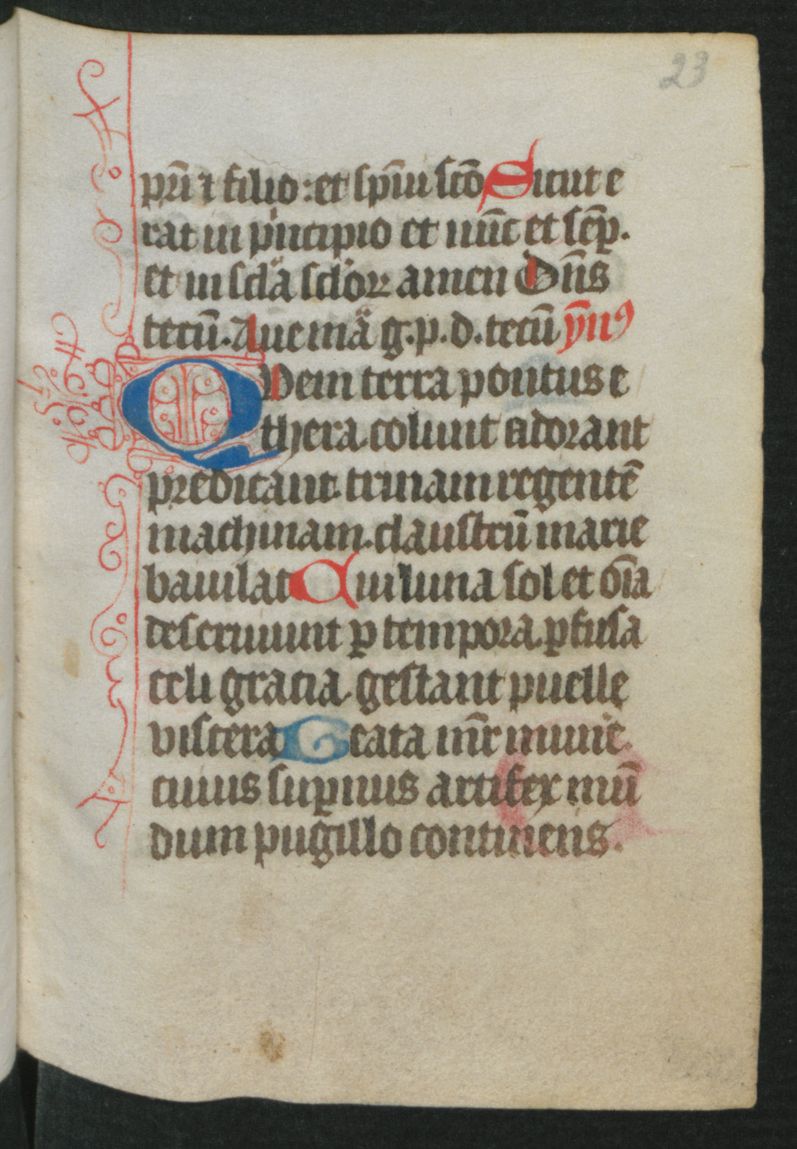 23
pr̄i ⁊ filio : et sp̄iui sc̄o Sicut e
rat in pͥncipio et nūc et semp̄.
et in scl̄a scl̄oꝝ amen Dn̄s
tecū. Aue maͣ g. p. d. tecū ymꝰ
QVem terra pontus e
thera. colunt adorant
predicant. trinam regentē
machinam. claustrū marie
baiulat Qui luna sol et oīa
deseruiunt ꝑ tempora. ꝑfusa
celi gracia. gestant puelle
viscera Beata mr̄ munē.
cuius suꝑnus artifex mū
dum pugillo continens.